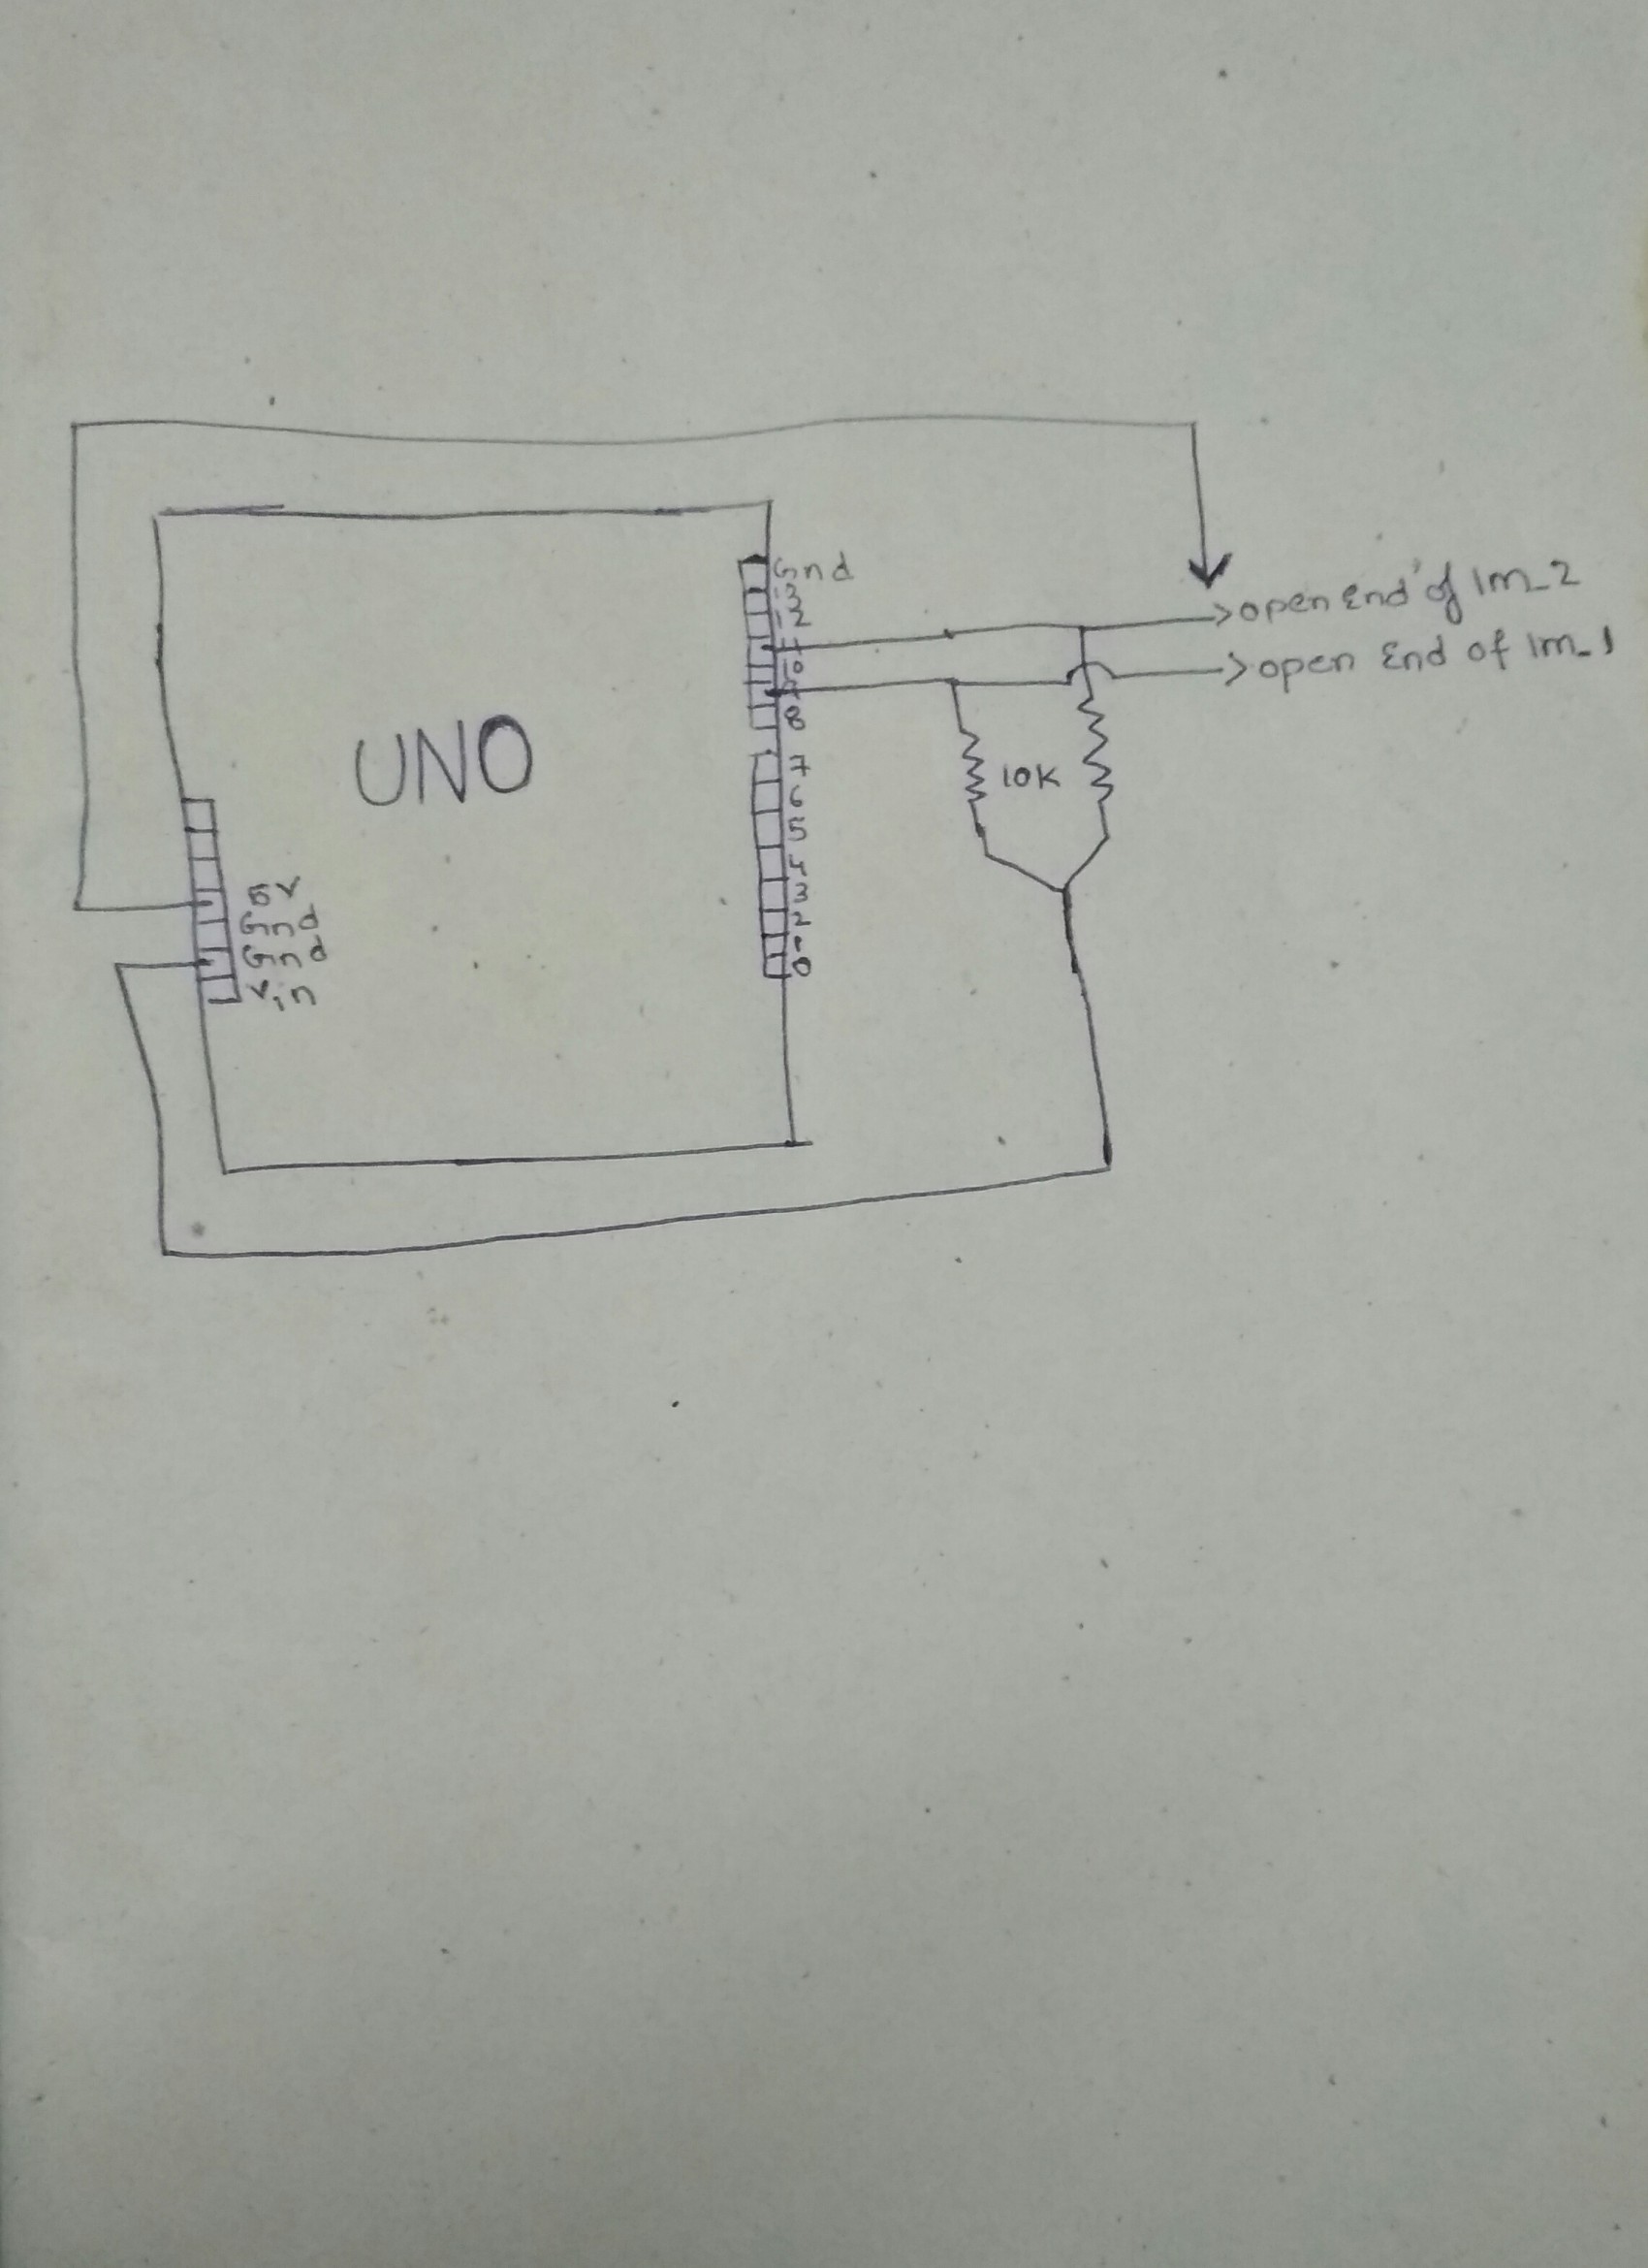 Gnd
13
12
11
10
9
8
7
6
5
4
3
2
1
0
open End of 1m_2
open End of 1m_1
UNO
10K
5V
Gnd
Gnd
Vin